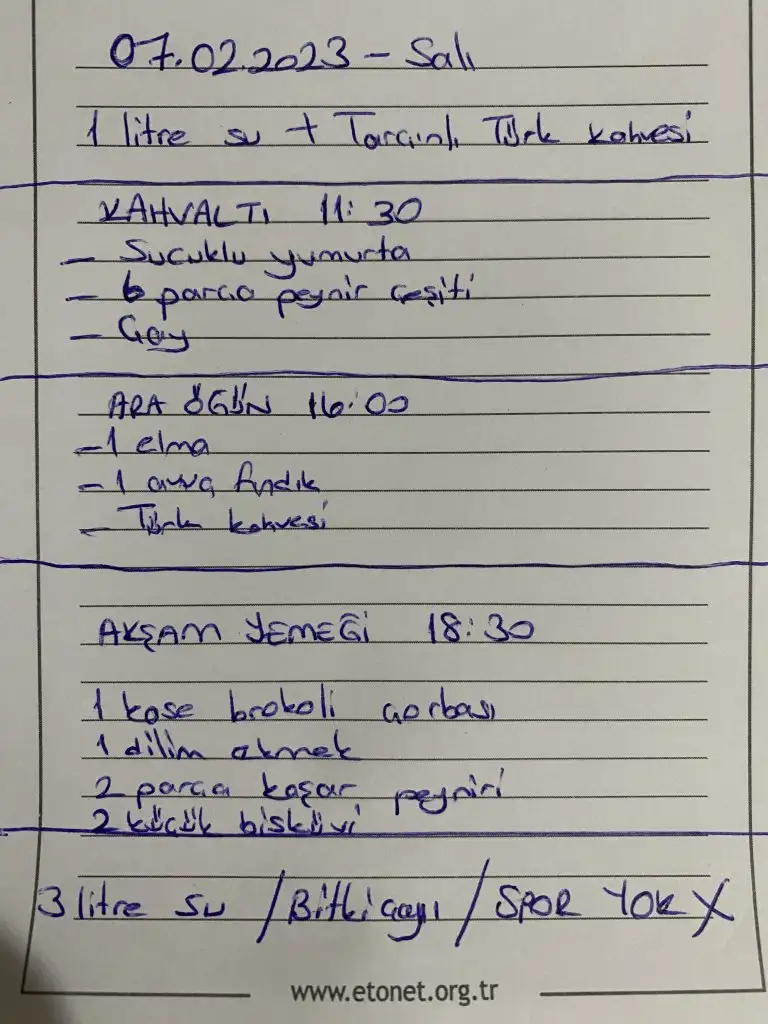 07.02.2023 - Salı
1 litre su + Tarçınlı Türk kahvesi
KAHVALTI 11:30
- Sucuklu yumurta
- 6 parça peynir çeşiti
- Çay
ARA ÖĞÜN 16:00
- 1 elma
- 1 avuç fındık
- Türk kahvesi
AKŞAM YEMEĞİ 18:30
1 kase brokoli çorbası
1 dilim ekmek
2 parça kaşar peyniri
2 küçük bisküvi
3 litre su / Bitki çayı / SPOR YOK X
www.etonet.org.tr